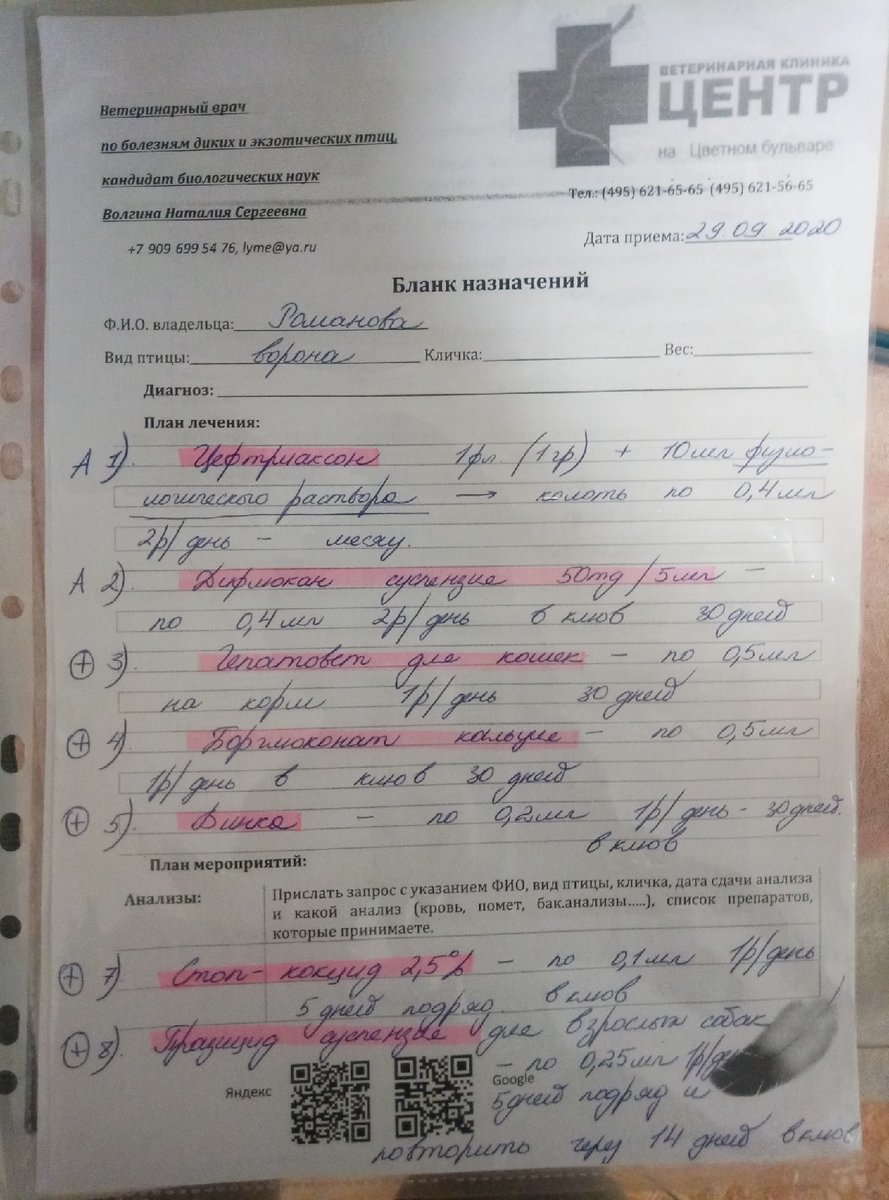 ВЕТЕРИНАРНАЯ КЛИНИКА
ЦЕНТР
на Цветном бульваре
Тел.: (495) 621-65-65 (495) 621-56-65
Ветеринарный врач
по болезням диких и экзотических птиц,
кандидат биологических наук
Волгина Наталия Сергеевна
+7 909 699 54 76, lyme@ya.ru
Дата приема: 29.09.2020
Бланк назначений
Ф.И.О. владельца: Романова
Вид птицы: ворона Кличка: Вес:
Диагноз:
План лечения:
А 1). Цефтриаксон 1фл. (1гр) + 10мл физио-
логического раствора → колоть по 0,4мл
2р/день - месяц.
А 2). Дифлюкан суспензия 50mg/5мл -
по 0,4мл 2р/день в клюв 30 дней
+ 3). Гепатовет для кошек - по 0,5мл
на корм 1р/день 30 дней
+ 4). Борглюконат кальция - по 0,5мл
1р/день в клюв 30 дней
+ 5). Винка - по 0,2мл 1р/день - 30дней.
в клюв
План мероприятий:
Анализы: Прислать запрос с указанием ФИО, вид птицы, кличка, дата сдачи анализа
и какой анализ (кровь, помет, бак.анализы.....), список препаратов,
которые принимаете.
+ 7). Стоп-кокцид 2,5% - по 0,1мл 1р/день
5 дней подряд в клюв
+ 8). Празицид суспензия для взрослых собак
- по 0,25мл 1р/
Яндекс Google
5дней подряд и
повторить через 14 дней в клюв